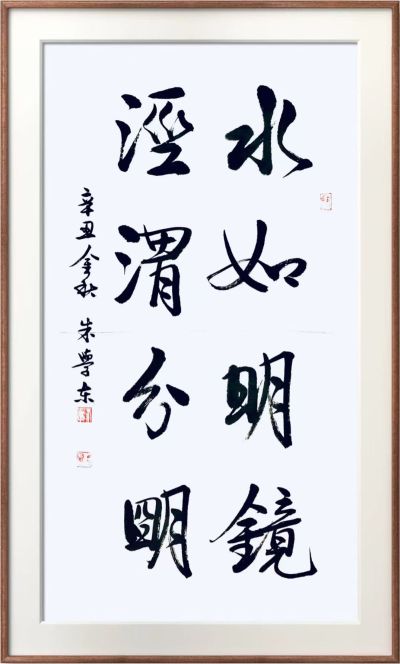 水如明鏡
涇渭分明
辛丑金秋 朱學东